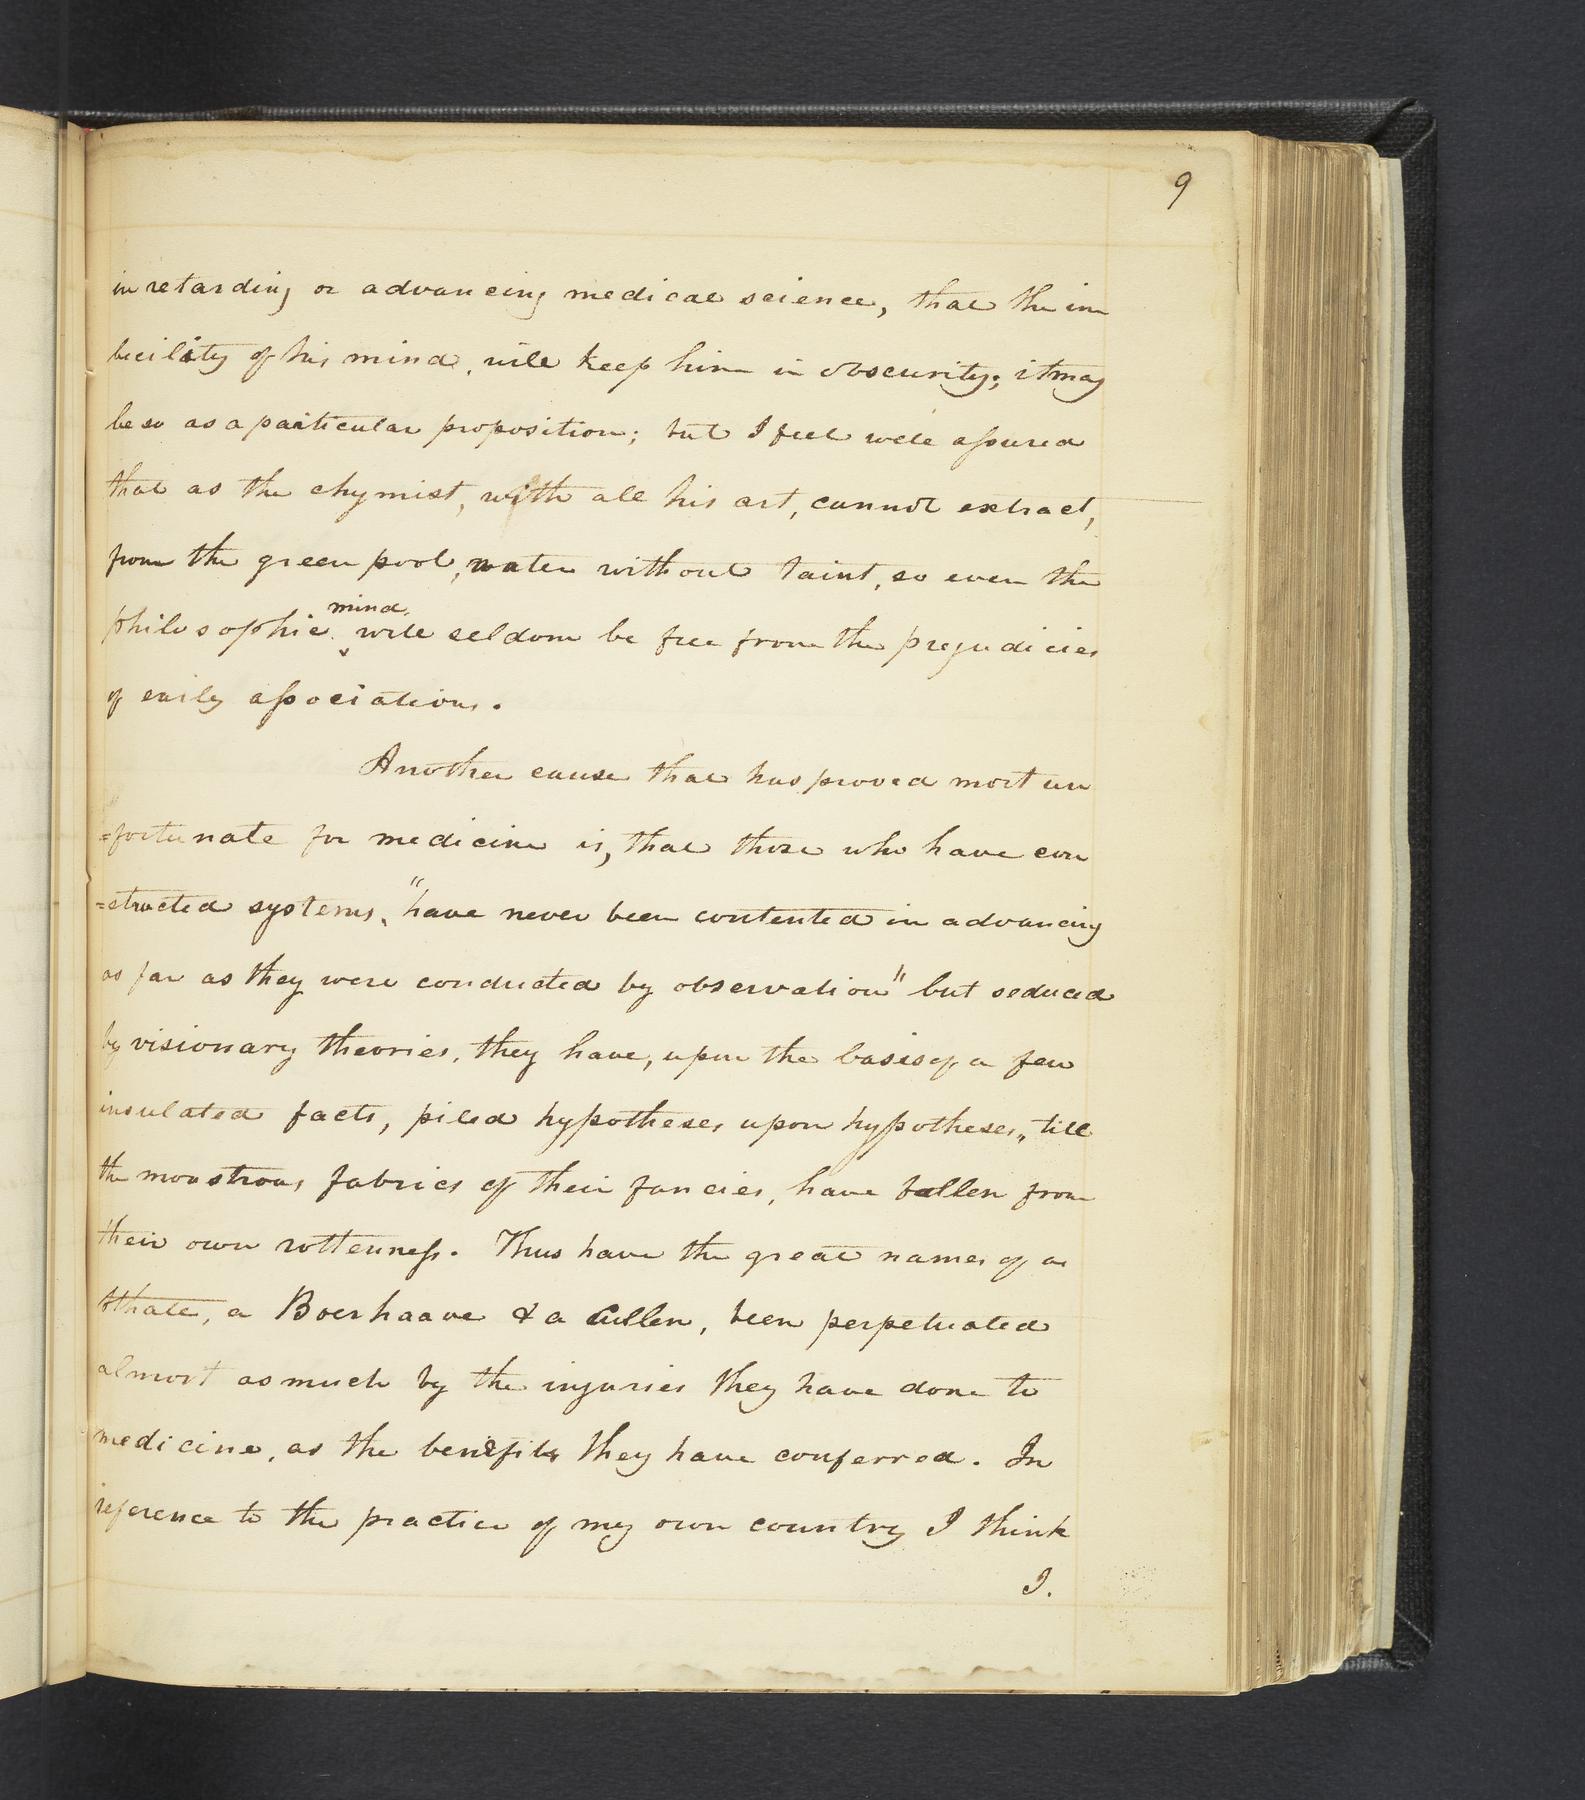 9
in retarding or advancing medical science, that the im
becility of his mind, will keep him in obscurity; it may
be so as a particular proposition; but I feel well aſsured
that as the chymist, with all his art, cannot extract,
from the green pool, water without taint, so even the
mind
philosophic ‸ will seldom be free from the prejudicies
of early aſsociations.
Another cause that has proved most un
=fortunate for medicine is, that those who have con
=structed systems, "have never been contented in advancing
as far as they were conducted by observation" but seduced
by visionary theories, they have, upon the basis of a few
insulated facts, piled hypotheses upon hypotheses, till
the monstrous fabrics of their fancies, have fallen from
their own rottenneſs. Thus have the great names of a
Sthall, a Boerhaave & a Cullen, been perpetuated
almost as much by the injuries they have done to
medicine, as the benefits they have conferred. In
reference to the practice of my own country I think
I.